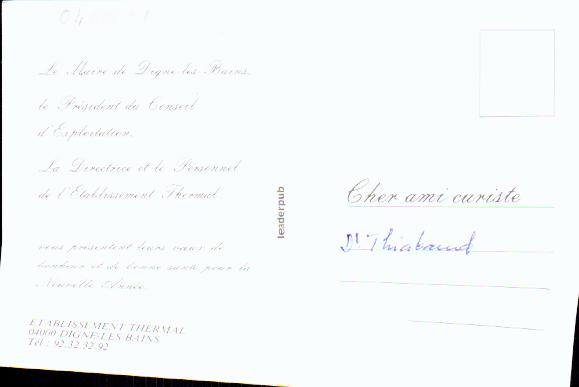 04
Le Maire de Digne-les-Bains,
le Président du Conseil
d'Exploitation,
La Directrice et le Personnel
de l'Etablissement Thermal
vous présentent leurs vœux de
bonheur et de bonne santé pour la
Nouvelle Année.
ETABLISSEMENT THERMAL
04000 DIGNE-LES-BAINS
Tél : 92.32.32.92
leaderpub
Cher ami curiste
Dr Thiabaud